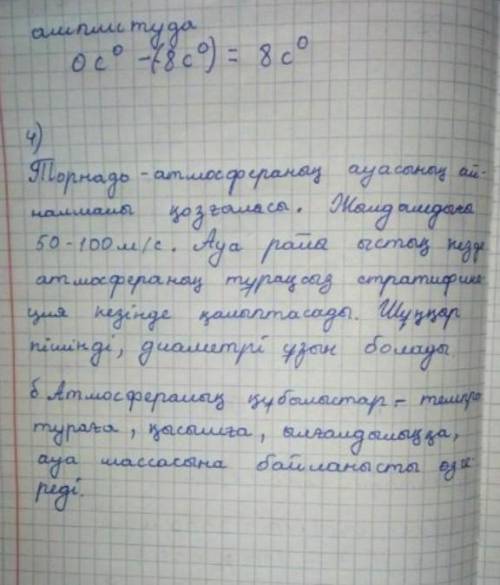 амплитуда
0 с⁰ -(-8 с⁰) = 8 с⁰
4)
Торнадо - атмосфераның ауасының ай-
налмалы қозғаласы. Жылдамдығы
50-100 м/с. Ауа райы ыстық кезде
атмосфераның тұрақсыз стратифика-
ция кезінде қалыптасады. Шұңқыр
пішінді, диаметрі ұзын болады
б Атмосфералық құбылыстар - темпра
тураға, қысымға, ылғалдылыққа,
ауа массасына байланысты өзге-
реді.